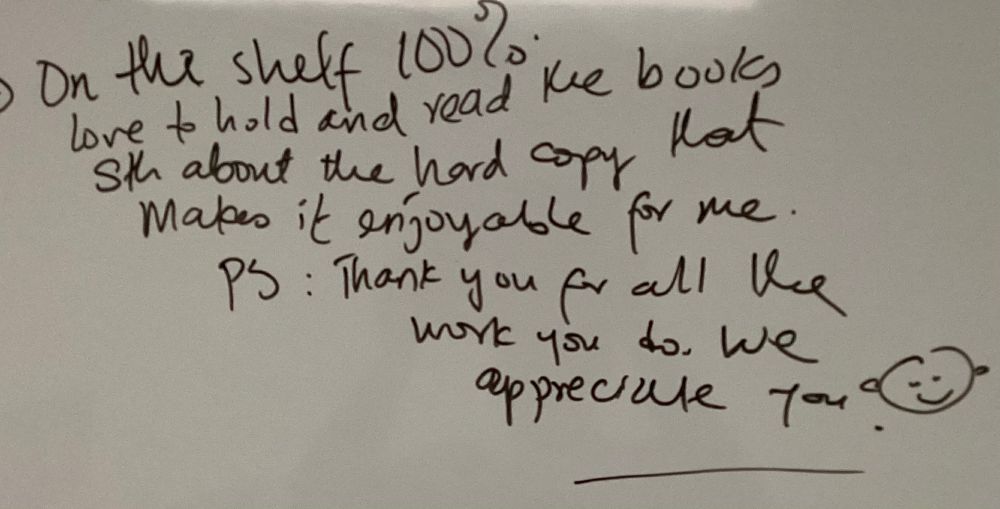 On the shelf 100%.
love to hold and read the books
Sth about the hard copy that
Makes it enjoyable for me.
PS : Thank you for all the
work you do. We
appreciate you.